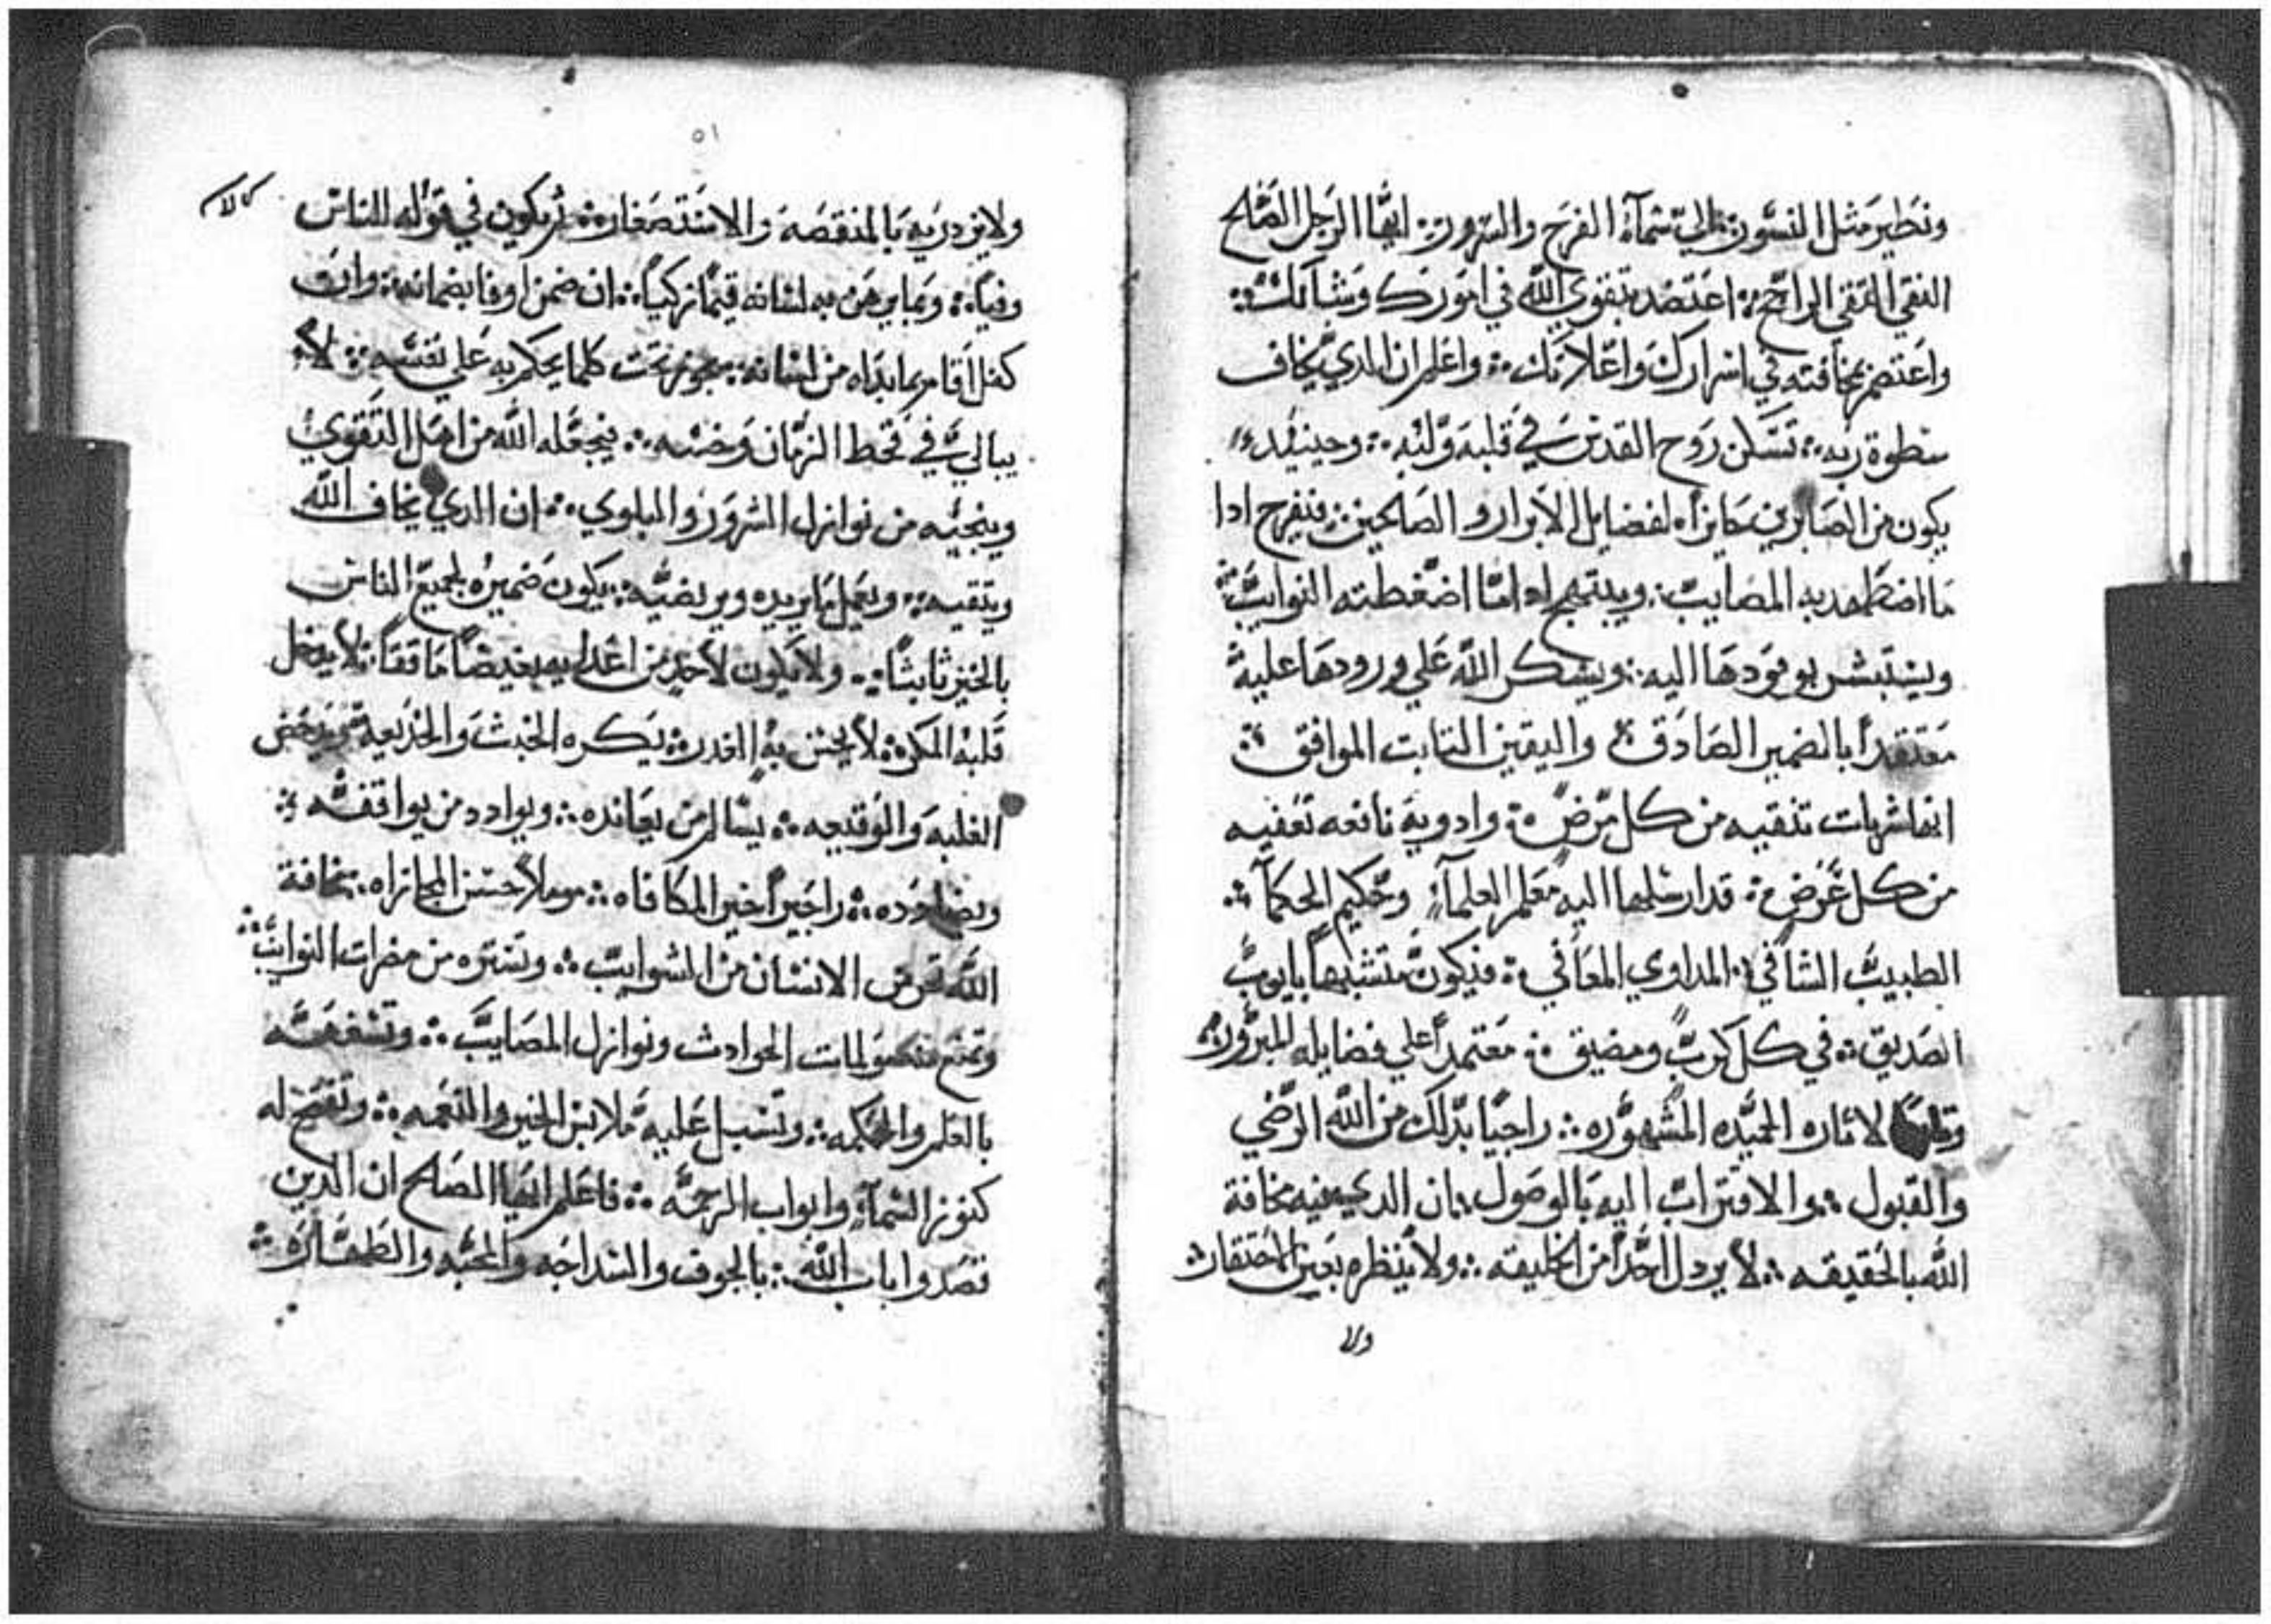 ونطير مثل النسور الي سماء الفرح والسرور ⁘ ايها الرجل الصالح
النقي التقي الراجح ⁘ اعتضد بتقوي الله في امورك وشانك ⁘
واعتصم بمخافته في اسرارك واعلانك ⁘ واعلم ان الدي يخاف
سطوة ربه ⁘ تسكن روح القدس في قلبه ولبه ⁘ وحينيد
يكون من الصابرين حايزاه لفضايل الابرار والصالحين ⁘ فيفرح ادا
ما اضطهدته المصايب ⁘ ويبتهج اداما اضغطته النوايب ⁘
ويستبشر بوفودها اليه ⁘ ويشكر الله علي ورودها عليه
معتقداً بالضمير الصادق ⁘ واليقين التابت الموافق ⁘
انها شربات تنقيه من كل مرض ⁘ وادويه نافعه تعفيه
من كل غرض ⁘ قد ارسلها اليه معلم العلمآء وحكيم الحكمآ ⁘
الطبيب الشافي ⁘ المداوي المعافي ⁘ فيكون متشبهاً بايوب
الصديق ⁘ في كل كرب ومضيق ⁘ معتمداً علي فضايله المبروره ⁘
لاثاره الحميده المشهوره ⁘ راجياً بدلك من الله الرضي
والقبول ⁘ والاقتراب اليه بالوصول ⁘ ان الدي فيه مخافة
الله بالحقيقه ⁘ لا يردل احداً من الخليقه ⁘ ولا ينظره بعين الاحتقار ⁘
ولا
٥١
ولا يزدريه بالمنقصه والاستصغار ⁘ ثم يكون في قوله للناس
وفياً ⁘ وبما يرهن به لسانه قيماً زكياً ⁘ ان ضمن اوفا بضمانه ⁘ وان
كفل اقام بما بداه من لسانه ⁘ يجوز تحت كلما يحكم به علي نفسه ⁘ لا
يبالي في قحط الزمان وخسه ⁘ فيجعله الله من اهل التقوي
وينجيه من نوازل الشرور والبلوي ⁘ ان الدي يخاف الله
ويتقيه ⁘ ويعمل ما يريده ويرتضيه ⁘ يكون ضميره لجميع الناس
بالخير ثابثاً ⁘ ولا يكون لاحد من اعدايه بغيضاً ماقتاً ⁘ لا يدخل
قلبه المكر ⁘ لا يحسن به الغدر ⁘ يكره الخبث والخديعه ⁘ ويدحض
الغلبه والوقيعه ⁘ يسالم من يعانده ⁘ ويوادد من يواقفه ⁘
ويضادده ⁘ راجياً خير المكافاه ⁘ موملاً حسن المجازاه ⁘ مخافة
الله تحرس الانسان من الشوايب ⁘ وتستره من مضرات النوايب ⁘
وتمنع عنه مولمات الحوادث ونوازل المصايب ⁘ وتسعفه
بالعلم والحكمه ⁘ وتسبل عليه ملابس الخير والنعمه ⁘ وتفتح له
كنوز السمآء وابواب الرحمه ⁘ فاعلم ايها الصالح ان الدين
قصدوا باب الله ⁘ بالخوف والسداجه والمحبه والطهاره ⁘